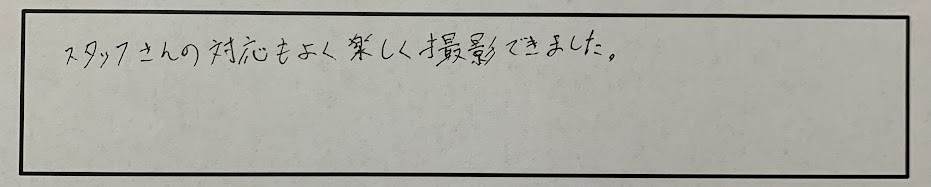 スタッフさんの対応もよく楽しく撮影できました。